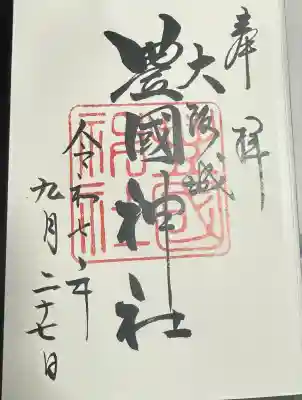 奉拝
大阪城
豊國神社
令和七年
九月二十七日